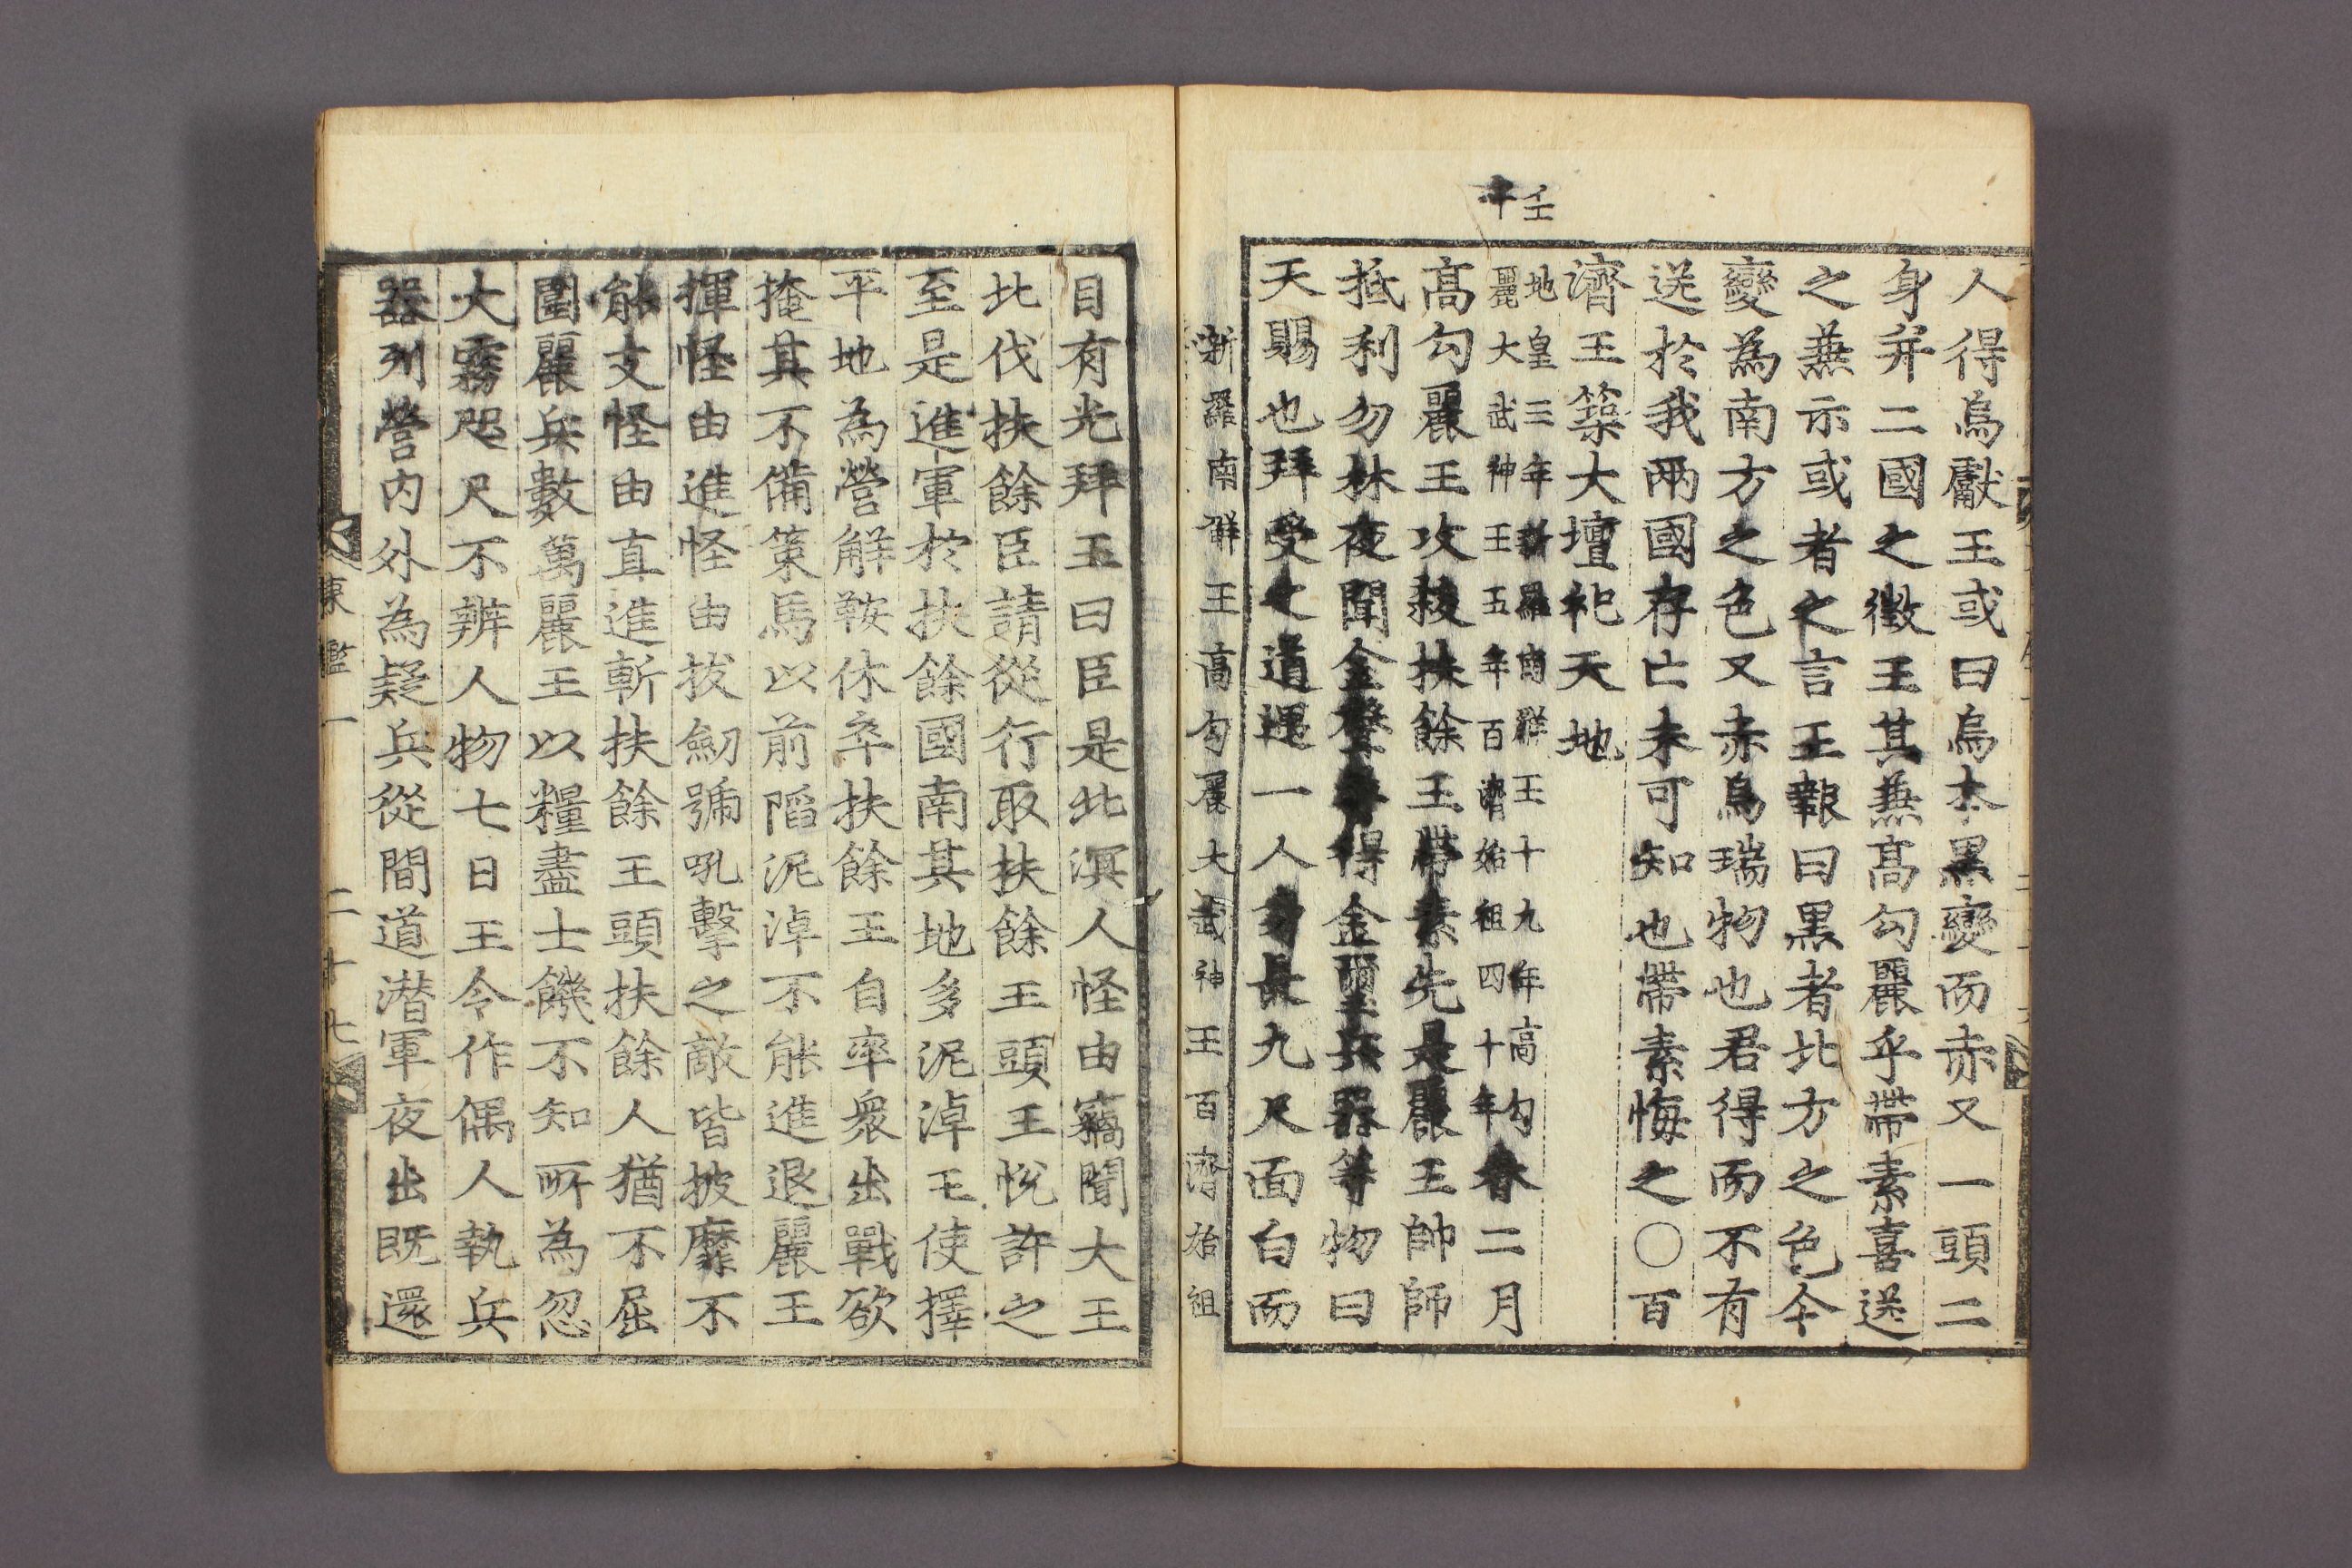 壬
午
人得烏獻王或曰烏本黑變而赤又一頭二
身并二國之徵王其兼高勾麗乎帶素喜送
之兼示或者之言王報曰黑者北方之色今
變為南方之色又赤烏瑞物也君得而不有
送於我兩國存亡未可知也帶素悔之○百
濟王築大壇祀天地
地皇三年新羅南解王十九年高勾
麗大武神王五年百濟始祖四十年春二月
高勾麗王攻殺扶餘王帶素先是麗王帥師
抵利勿林夜聞金聲得金璽兵器等物曰
天賜也拜受之道遇一人身長九尺面白而
新羅南解王高勾麗大武神王百濟始祖
目有光拜王曰臣是北溟人怪由竊聞大王
北伐扶餘臣請從行取扶餘王頭王悅許之
至是進軍於扶餘國南其地多泥淖王使擇
平地為營解鞍休卒扶餘王自率衆出戰欲
掩其不備策馬以前陷泥淖不能進退麗王
揮怪由進怪由拔劒號吼擊之敵皆披靡不
能支怪由直進斬扶餘王頭扶餘人猶不屈
圍麗兵數萬麗王以糧盡士饑不知所為忽
大霧咫尺不辨人物七日王令作偶人執兵
器列營內外為疑兵從間道潜軍夜出既還
東鑑一
二十七